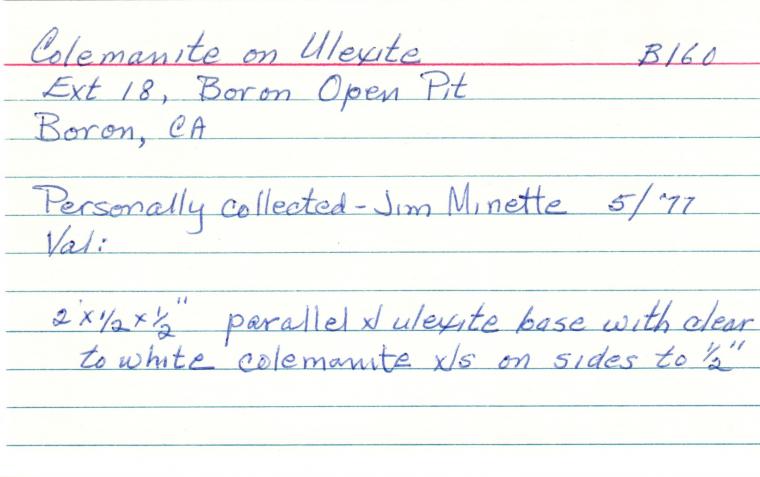 Colemanite on Ulexite B160
Ext 18, Boron Open Pit
Boron, CA
Personally collected - Jim Minette 5/'77
Val:
2 x 1/2 x 1/2" parallel xl ulexite base with clear
to white colemanite xls on sides to 1/2"